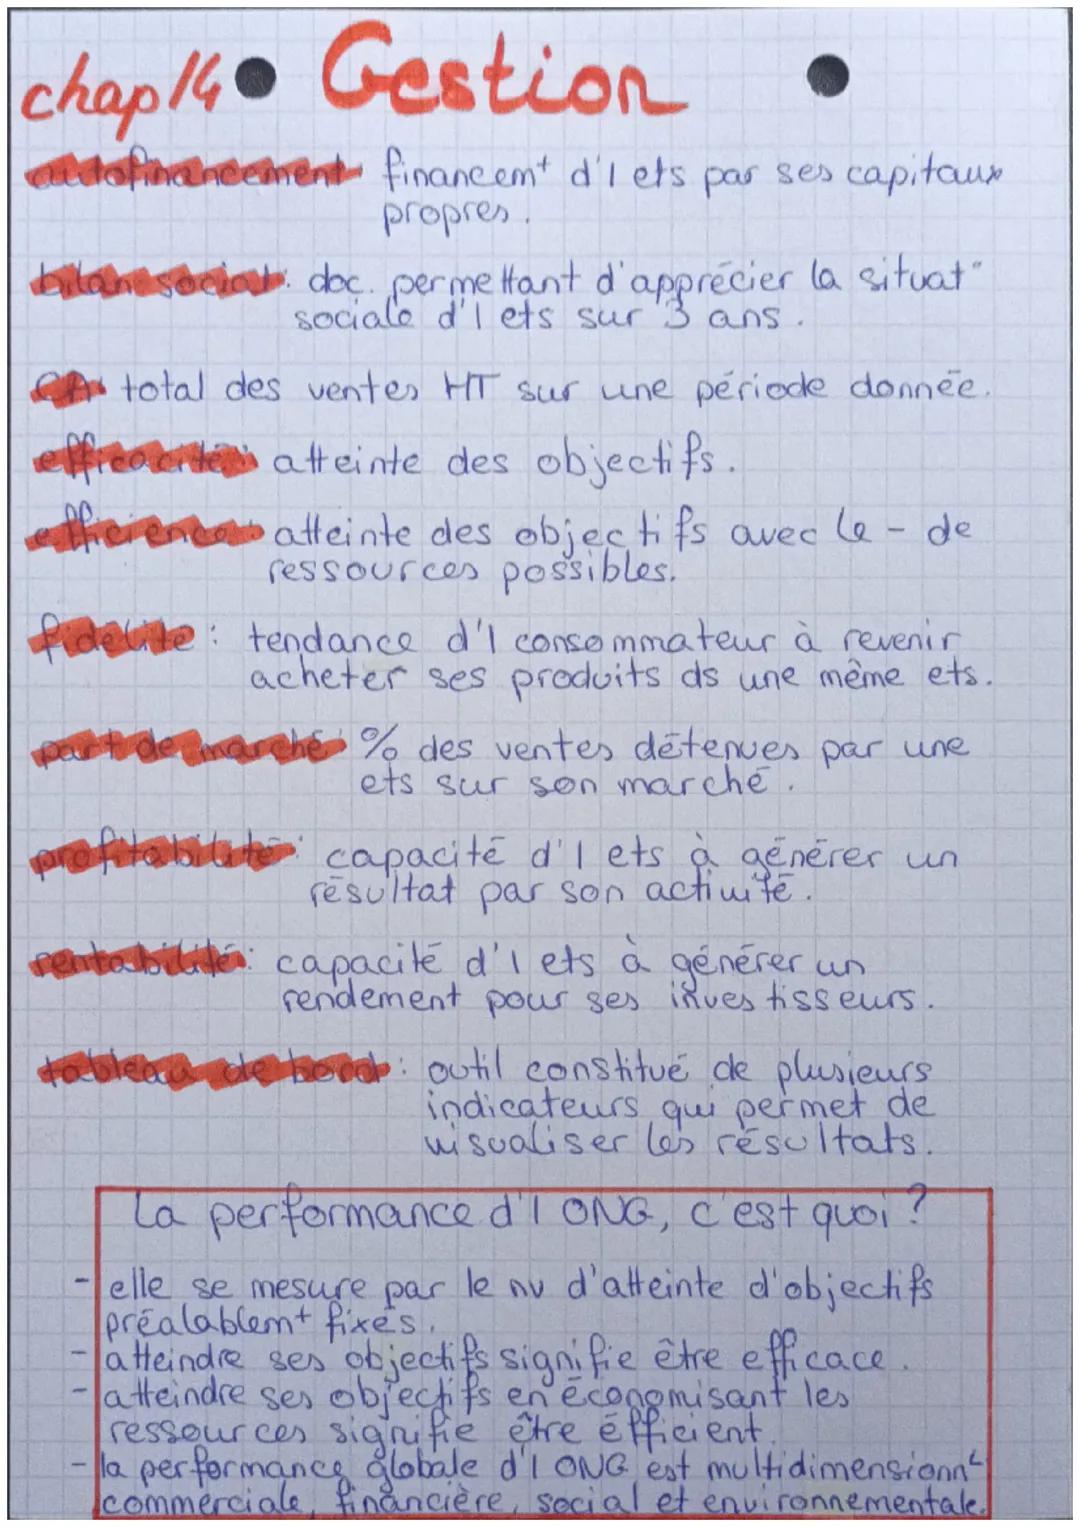 chap 14 Gestion
autofinancement financem^t d'1 ets par ses capitaux
propres.
bilan social: doc. permettant d'apprécier la situat°
sociale d'1 ets sur 3 ans.
CA: total des ventes HT sur une période donnée.
efficacité: atteinte des objectifs.
efficience: atteinte des objectifs avec le - de
ressources possibles.
fidélité: tendance d'1 consommateur à revenir
acheter ses produits ds une même ets.
part de marché: % des ventes détenues par une
ets sur son marché.
profitabilité: capacité d'1 ets à générer un
résultat par son activité.
rentabilité: capacité d'1 ets à générer un
rendement pour ses investisseurs.
tableau de bord: outil constitué de plusieurs
indicateurs qui permet de
visualiser les résultats.
La performance d'1 ONG, c'est quoi ?
- elle se mesure par le nv d'atteinte d'objectifs
préalablem^t fixés.
- atteindre ses objectifs signifie être efficace.
- atteindre ses objectifs en économisant les
ressources signifie être éfficient.
- la performance globale d'1 ONG est multidimensionn^L
commerciale, financière, social et environnementale.